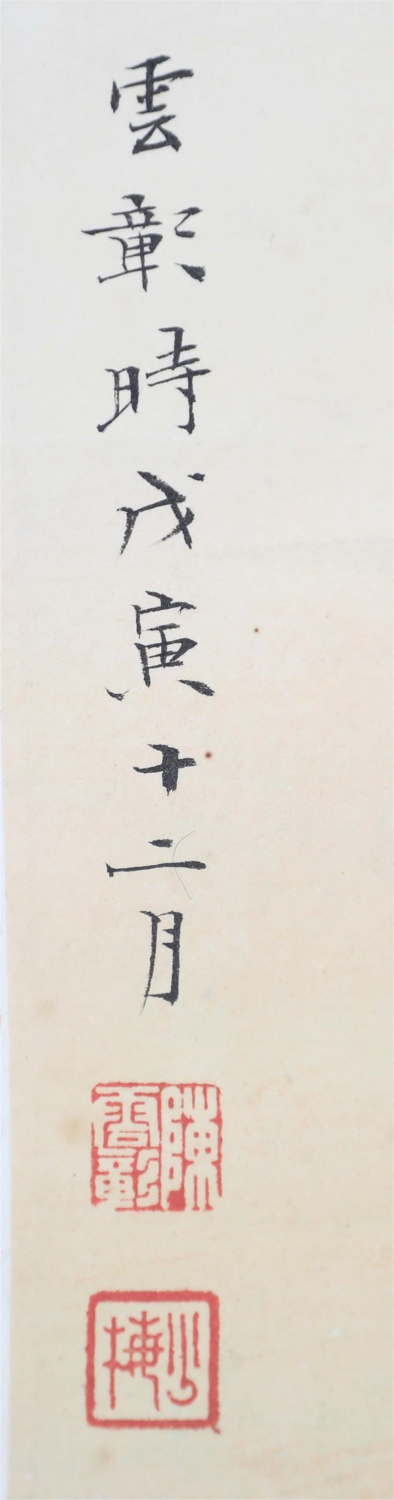 雲彰時戊寅十二月
陳雲彰
少梅